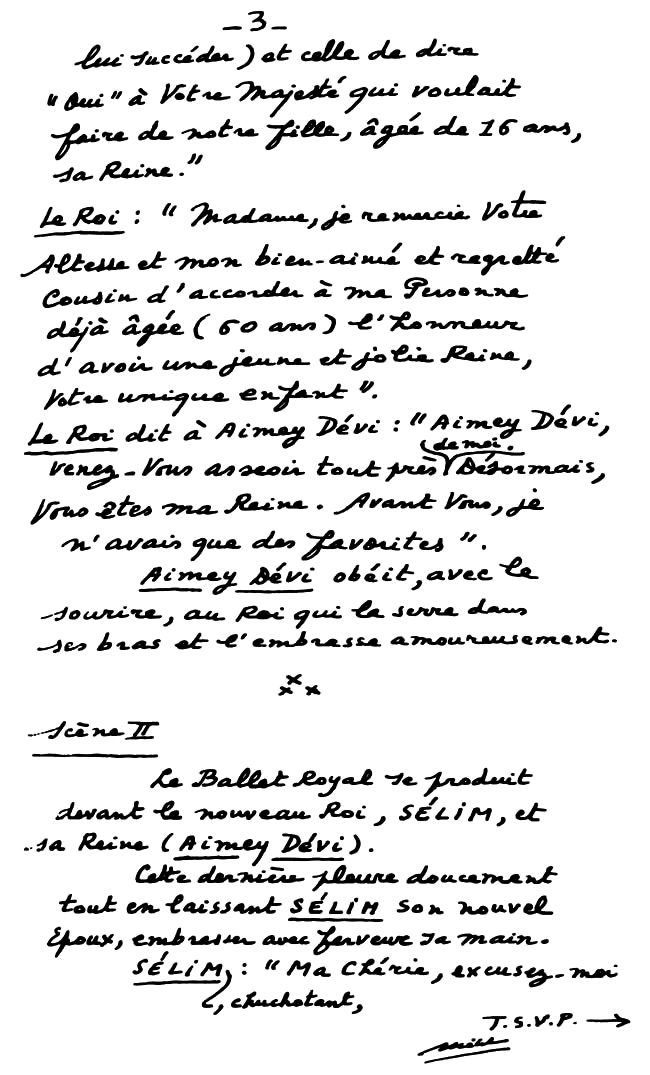 - 3 -
lui succéder) et celle de dire
"Oui" à Votre Majesté qui voulait
faire de notre fille, âgée de 16 ans,
sa Reine."
Le Roi : "Madame, je remercie Votre
Altesse et mon bien-aimé et regretté
Cousin d'accorder à ma Personne
déjà âgée (60 ans) l'honneur
d'avoir une jeune et jolie Reine,
Votre unique enfant".
Le Roi dit à Aimey Dévi : "Aimey Dévi,
de moi.
venez-Vous asseoir tout près Désormais,
Vous êtes ma Reine. Avant Vous, je
n'avais que des favorites".
Aimey Dévi obéit, avec le
sourire, au Roi qui la serre dans
ses bras et l'embrasse amoureusement.
x x x
Scène II
Le Ballet Royal se produit
devant le nouveau Roi, SÉLIM, et
sa Reine (Aimey Dévi).
Cette dernière pleure doucement
tout en laissant SÉLIM son nouvel
Epoux, embrasser avec ferveur sa main.
SÉLIM, : "Ma Chérie, excusez-moi
, chuchotant,
T.S.V.P. →